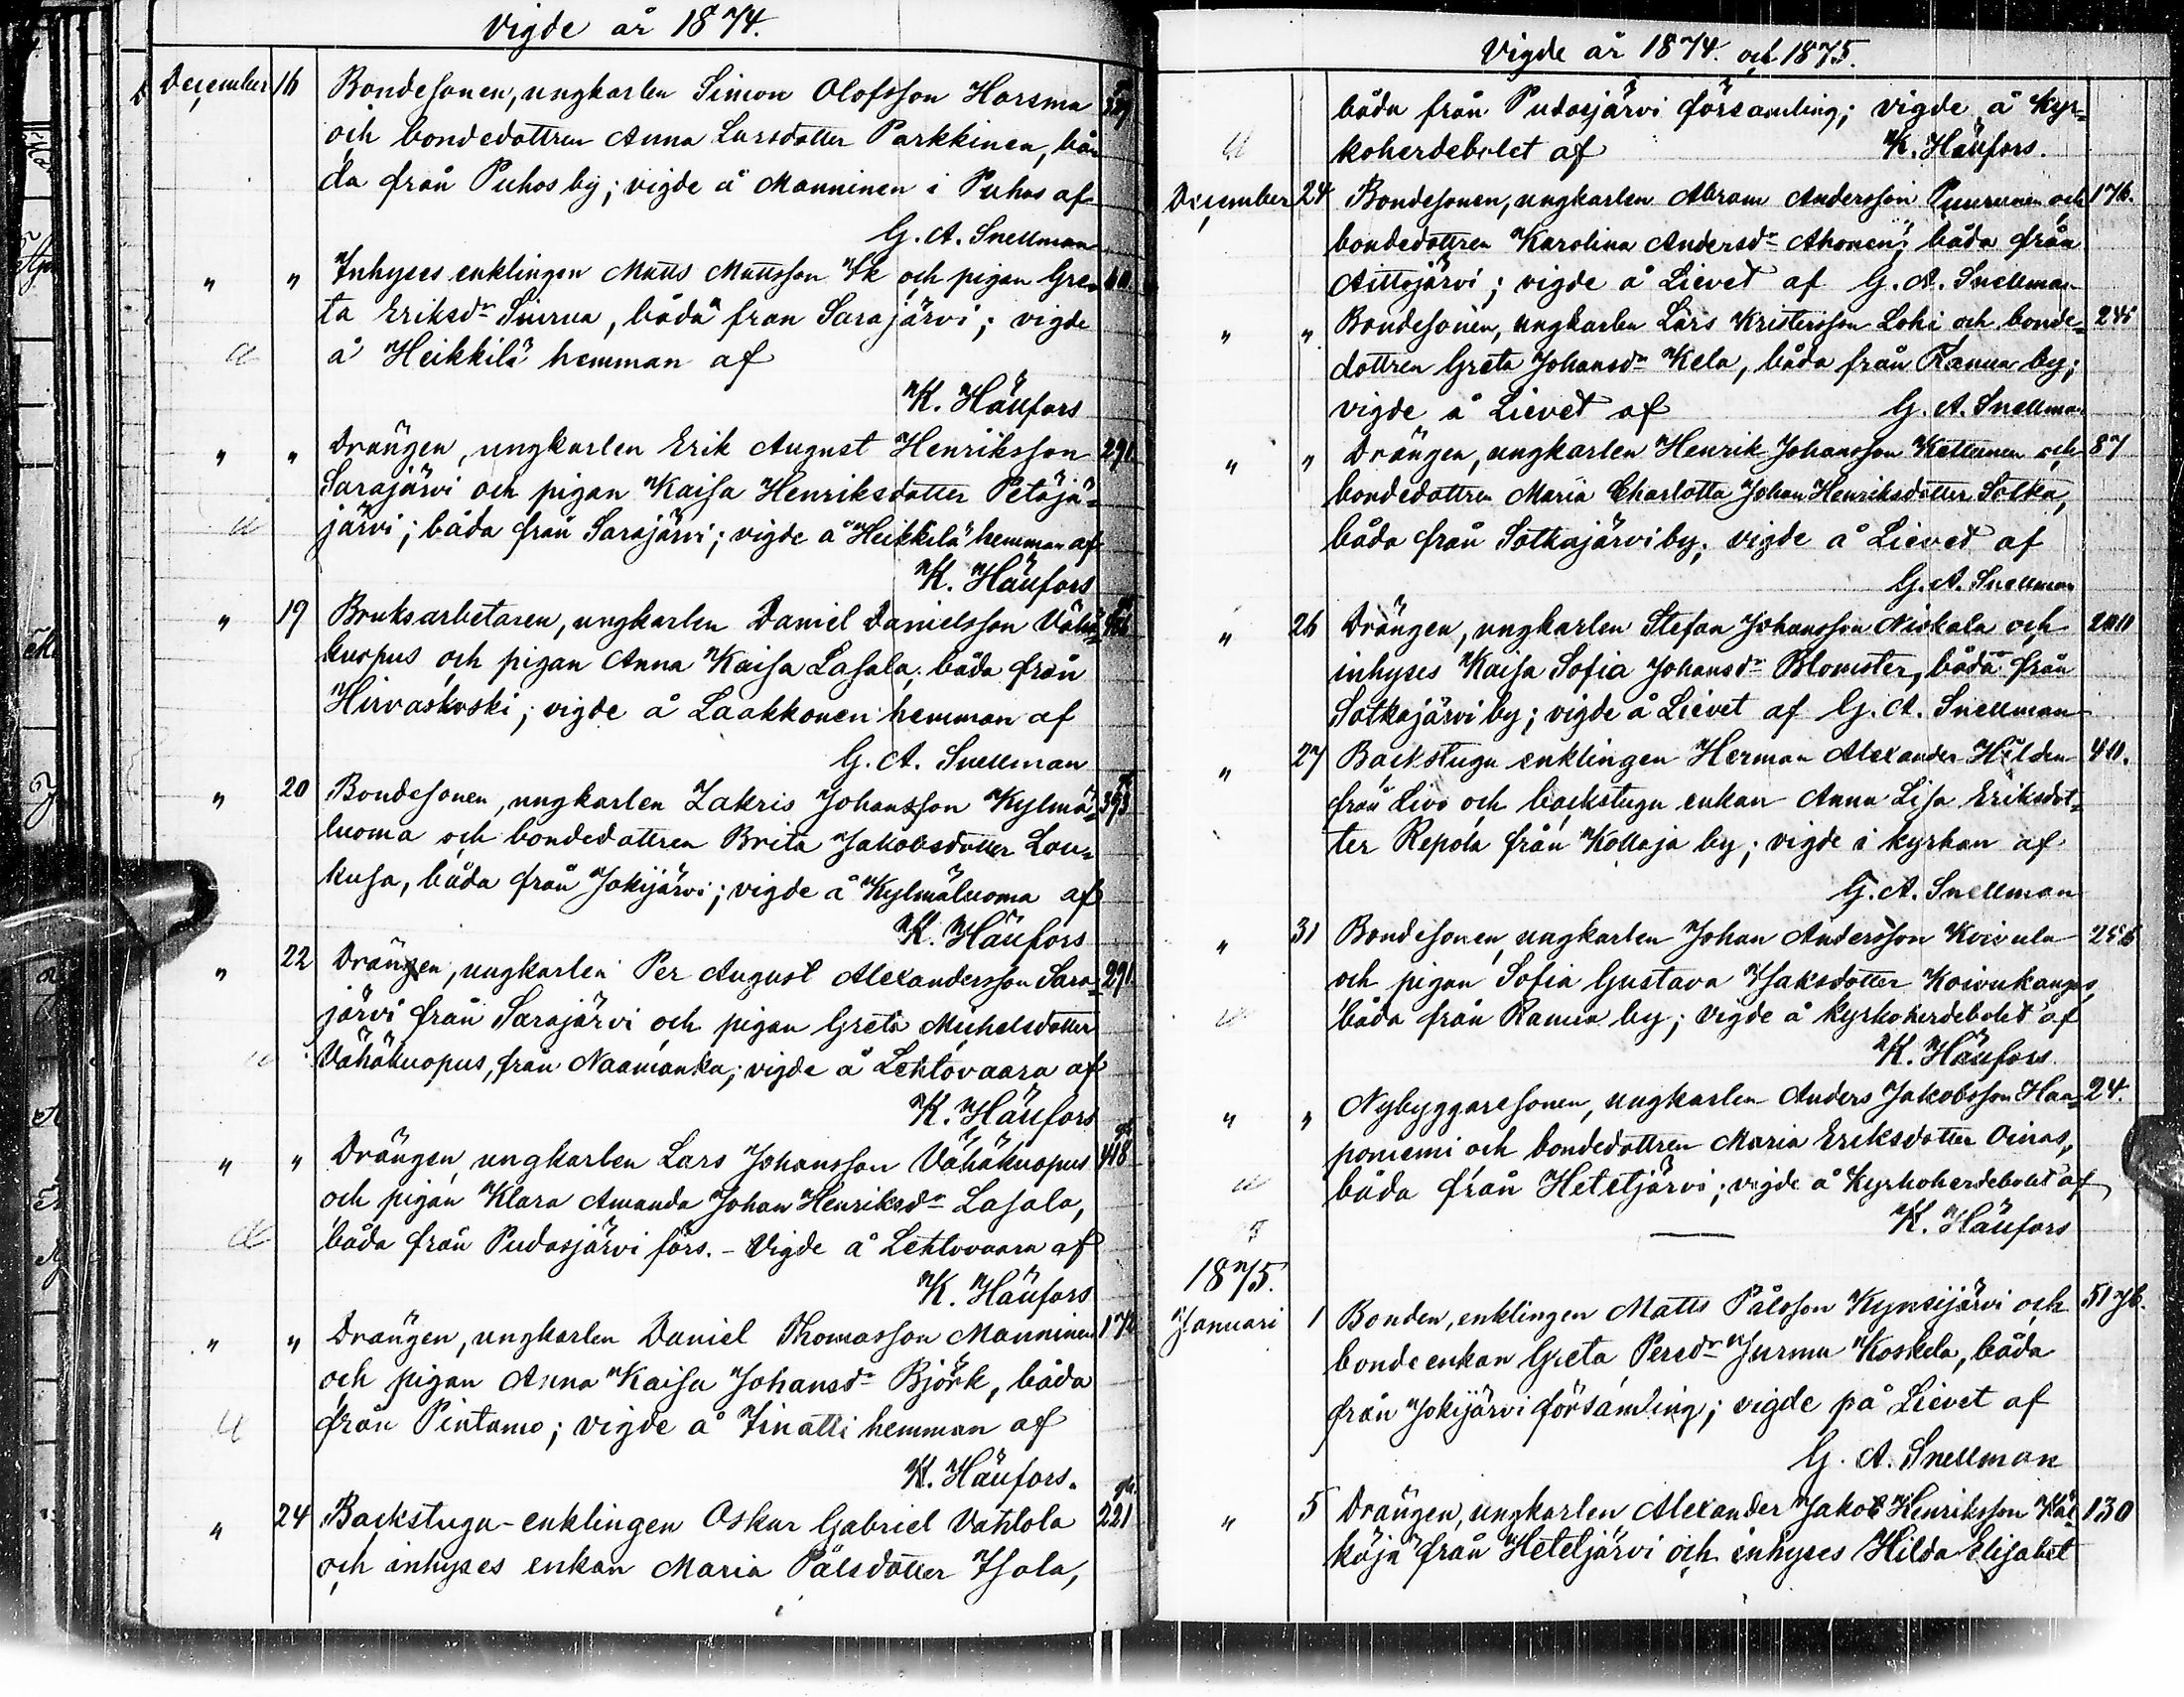 Vigde år 1874.
December 16 Bondesonen, ungkarlen Simon Olofsson Harsma
och bondedottren Anna Larsdotter Parkkinen, bå-
da från Puhos by; vigde å Manninen i Puhos af
G. A. Snellman
" " Inhyses enklingen Matts Mattsson Ik och pigan Gre-
ta Eriksdr Siurua, båda från Sarajärvi; vigde
å Heikkilä hemman af
K. Häufors
" " Drängen, ungkarlen Erik August Henriksson 291
Sarajärvi och pigan Kaisa Henriksdotter Petäjä-
järvi; båda från Sarajärvi; vigde å Heikkilä hemman af
K. Häufors
" 19 Bruksarbetaren, ungkarlen Daniel Danielsson Vähä-
kuopus och pigan Anna Kaisa Lasala, båda från
Hirvaskoski; vigde å Laakkonen hemman af
G. A. Snellman
" 20 Bondesonen, ungkarlen Zakris Johansson Kylmä- 393
luoma och bondedottren Brita Jakobsdotter Lou-
kusa, båda från Jokijärvi; vigde å Kylmäluoma af
K. Häufors
" 22 Drängen, ungkarlen Per August Alexandersson Sara- 291
järvi från Sarajärvi och pigan Greta Michelsdotter
Vähäkuopus, från Naamanka; vigde å Lehtovaara af
K. Häufors
" " Drängen, ungkarlen Lars Johansson Vähäkuopus 418
och pigan Klara Amanda Johan Henriksdr Lasala,
båda från Pudasjärvi förs. - Vigde å Lehtovaara af
K. Häufors
" " Drängen, ungkarlen Daniel Thomasson Manninen
och pigan Anna Kaisa Johansdr Björk, båda
från Pintamo; vigde å Iinatti hemman af
K. Häufors.
" 24 Backstugu-enklingen Oskar Gabriel Vahtola 221
och inhyses enkan Maria Pålsdotter Isola,
Vigde år 1874. och 1875.
båda från Pudasjärvi församling; vigde å Kyr-
koherdebolet af K. Häufors.
December 24 Bondesonen, ungkarlen Abram Andersson Puurunen och 176.
bondedottren Karolina Andersdr Ahonen, båda från
Aittojärvi; vigde å Lievet af G. A. Snellman
" " Bondesonen, ungkarlen Lars Kristersson Lohi och bonde- 245
dottren Greta Johansdr Kela, båda från Ranua by;
vigde å Lievet af G. A. Snellman
" " Drängen, ungkarlen Henrik Johansson Kettunen och 87
bondedottren Maria Charlotta Johan Henriksdotter Sotka,
båda från Sotkajärvi by; vigde å Lievet af
G. A. Snellman
" 26 Drängen, ungkarlen Stefan Johansson Niskala och
inhyses Kaisa Sofia Johansdr Blomster, båda från
Sotkajärvi by; vigde å Lievet af G. A. Snellman
" 27 Backstugu enklingen Herman Alexander Hilden 411.
från Livo och backstugu enkan Anna Lisa Eriksdot-
ter Repola från Kollaja by; vigde i kyrkan af
G. A. Snellman
" 31 Bondesonen, ungkarlen Johan Andersson Koivula 256
och pigan Sofia Gustava Isaksdotter Koivukangas,
båda från Ranua by; vigde å kyrkoherdebolet af
K. Häufors
" " Nybyggaresonen, ungkarlen Anders Jakobsson Haa- 24.
poniemi och bondedottren Maria Eriksdotter Oinas,
båda från Hetetjärvi; vigde å Kyrkoherdebolet af
K. Häufors
1875.
Januari 1 Bonden, enklingen Matts Pålsson Kynsijärvi och
bonde enkan Greta Persdr Jurmu Koskela, båda
från Jokijärvi församling; vigde på Lievet af
G. A. Snellman
" 5 Drängen, ungkarlen Alexander Jakob Henriksson Käl- 130
käjä från Hetetjärvi och inhyses Hilda Elisabet